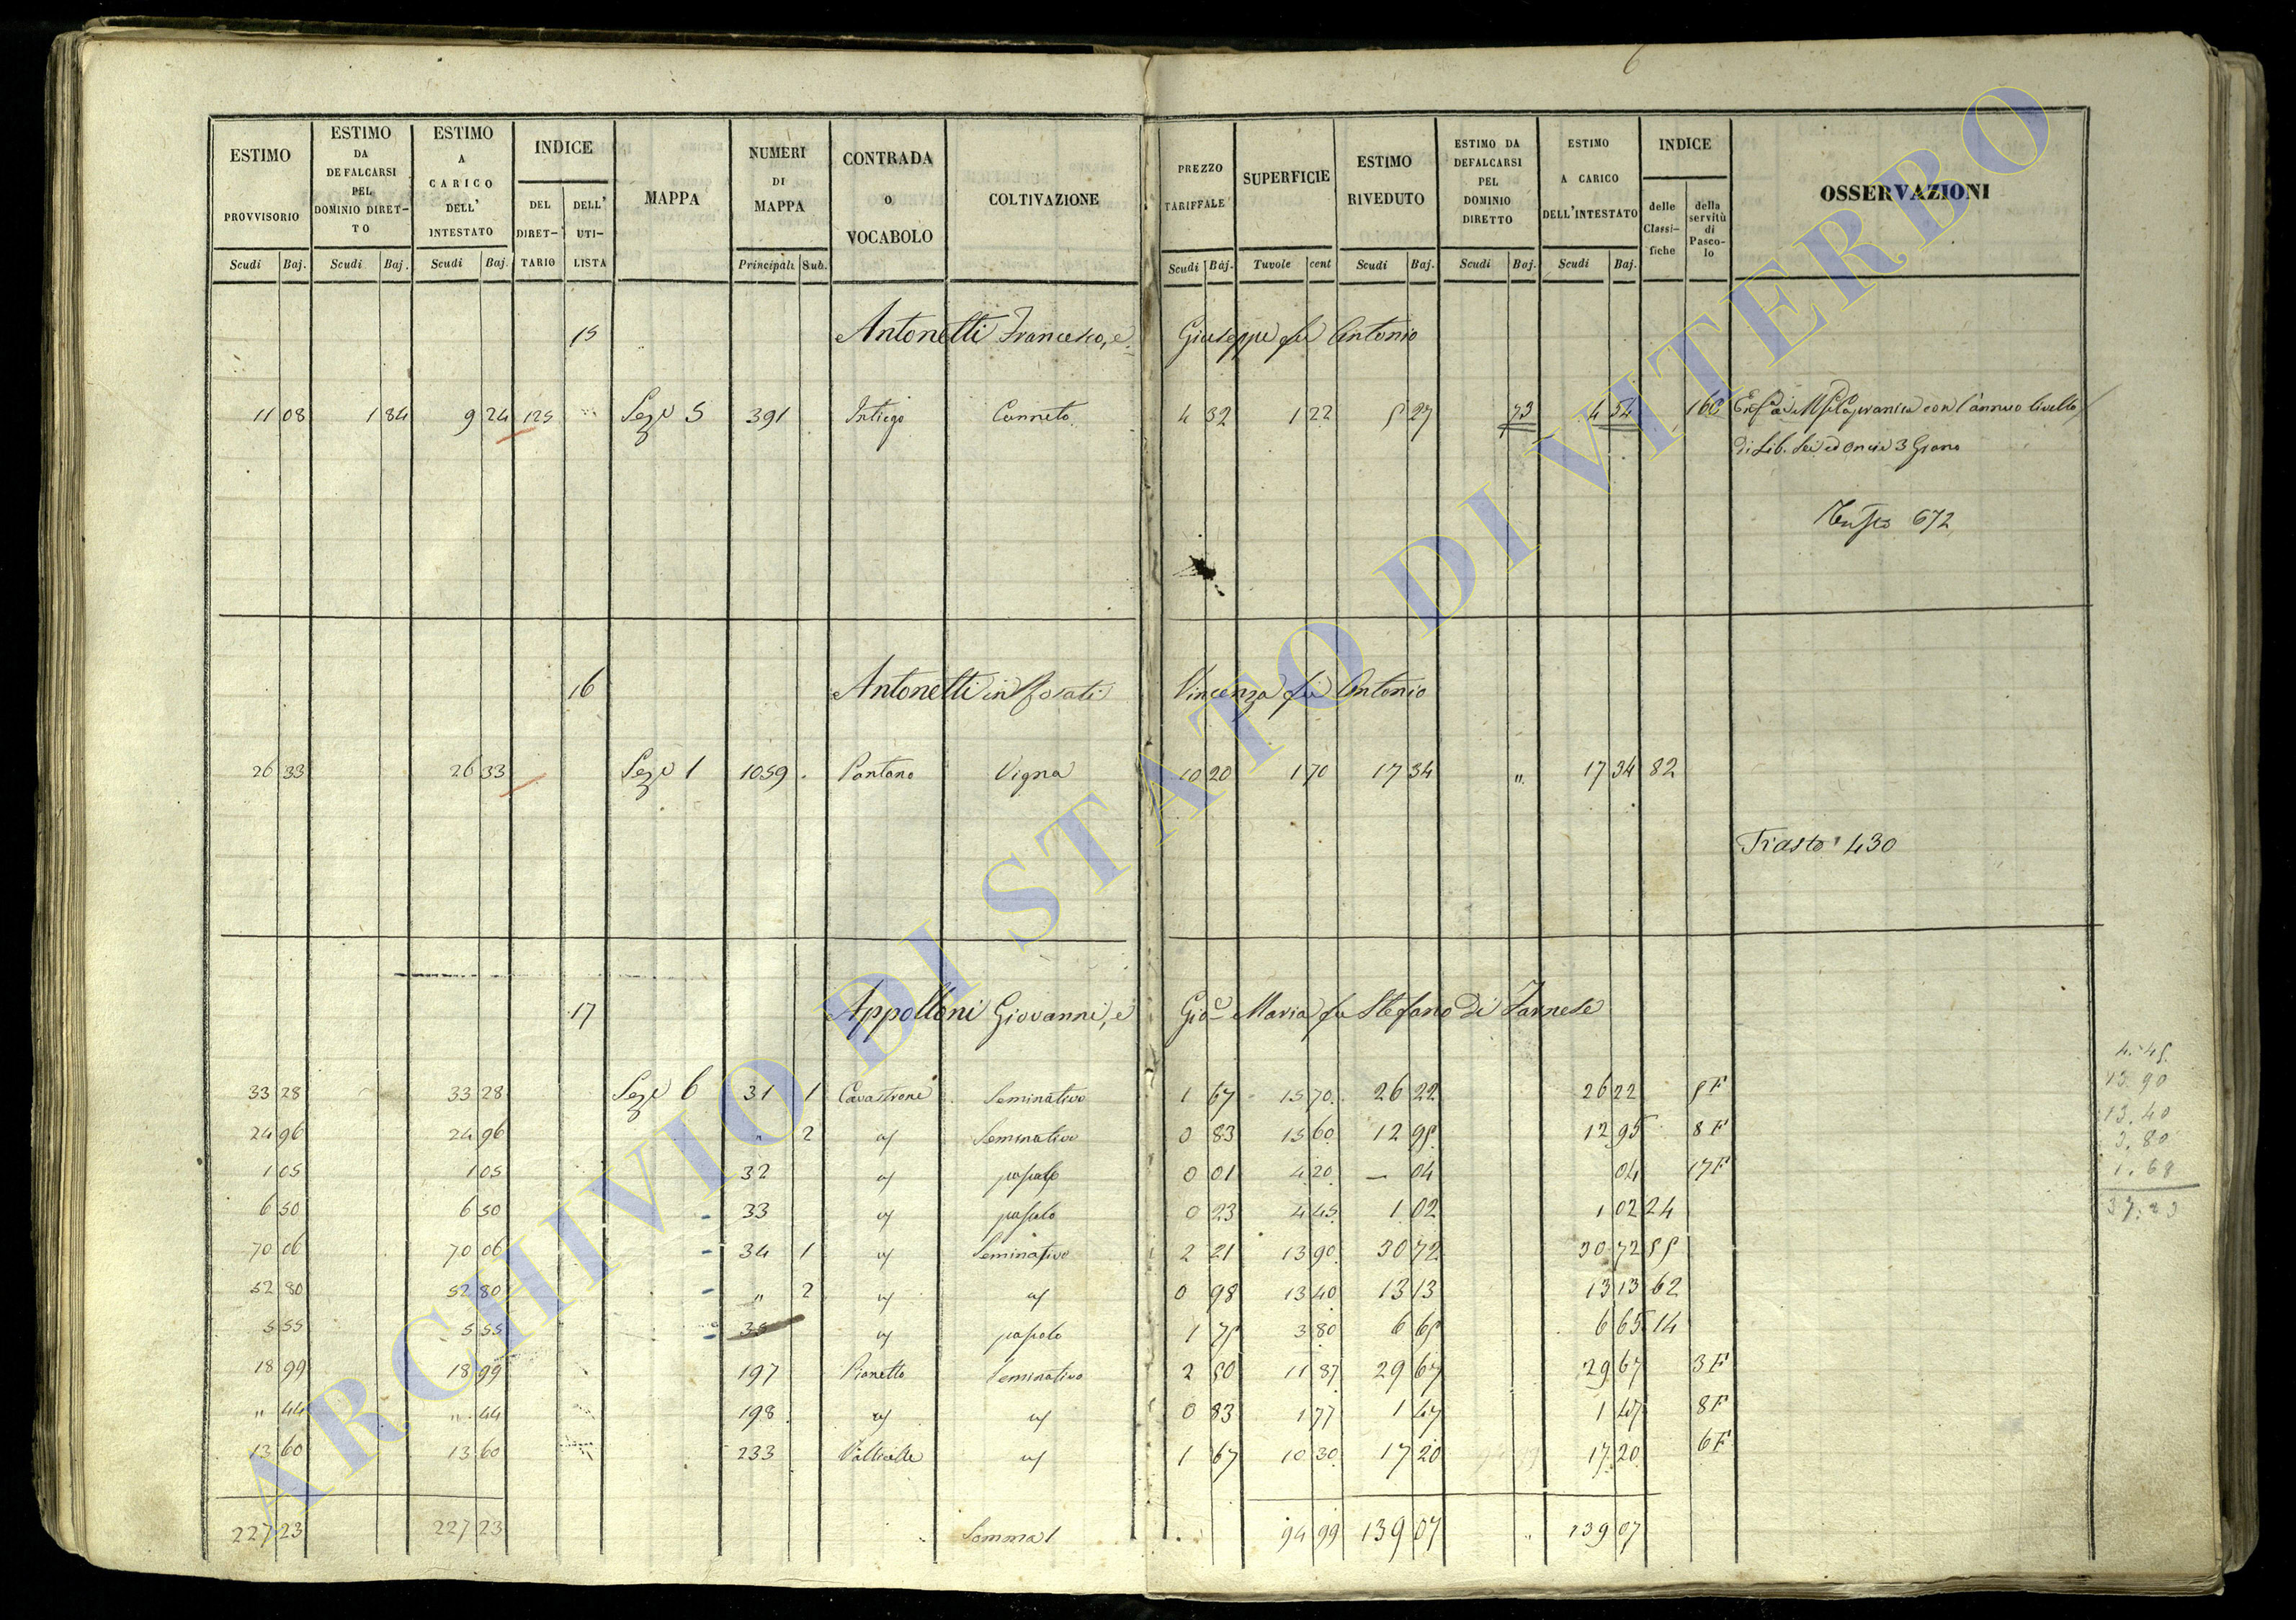 6
ESTIMO PROVVISORIO Scudi Baj. | ESTIMO DA DEFALCARSI PEL DOMINIO DIRETTO Scudi Baj. | ESTIMO A CARICO DELL' INTESTATO Scudi Baj. | INDICE DEL DIRETTARIO | DELL' UTILISTA | MAPPA | NUMERI DI MAPPA Principali Sub. | CONTRADA O VOCABOLO | COLTIVAZIONE | PREZZO TARIFFALE Scudi Baj. | SUPERFICIE Tavole cent | ESTIMO RIVEDUTO Scudi Baj. | ESTIMO DA DEFALCARSI PEL DOMINIO DIRETTO Scudi Baj. | ESTIMO A CARICO DELL'INTESTATO Scudi Baj. | INDICE delle Classifiche | della servitù di Pascolo | OSSERVAZIONI
15 Antonelli Francesco, e Giuseppe fu Antonio
11 08 1 84 9 24 125 Seze 5 391 Intiego Canneto 4 32 1 22 5 27 73 4 54 160 con l'annuo livello
di Lib. sei ed oncie 3 Grano
672
16 Antonelli in Rosati Vincenza fu Antonio
26 33 26 33 Seze 1 1059 Pantano Vigna 10 20 1 70 17 34 " 17 34 82
Trasto 430
17 Appolloni Giovanni, e Gioe Maria fu Stefano di Farnese
33 28 33 28 Seze 6 31 1 Cavastrone Seminativo 1 67 15 70 26 22 26 22 5F
24 96 24 96 " 2 Seminativo 0 83 15 60 12 95 12 95 8F
1 05 1 05 32 pascolo 0 01 4 20 — 04 04 17F
6 50 6 50 33 pascolo 0 23 4 45 1 02 1 02 24
70 06 70 06 34 1 Seminativo 2 21 13 90 30 72 30 72 55
52 80 52 80 " 2 0 98 13 40 13 13 13 13 62
5 55 5 55 35 pascolo 1 75 3 80 6 65 6 65 14
18 99 18 99 197 Pianetto Seminativo 2 50 11 87 29 67 29 67 3F
" 44 " 44 198 0 83 1 77 1 47 1 47 8F
13 60 13 60 233 1 67 10 30 17 20 17 20 6F
227 23 227 23 Somma 94 99 139 07 " 139 07
4.45
13.90
13.40
3.80
1.68
37.23
ARCHIVIO DI STATO DI VITERBO